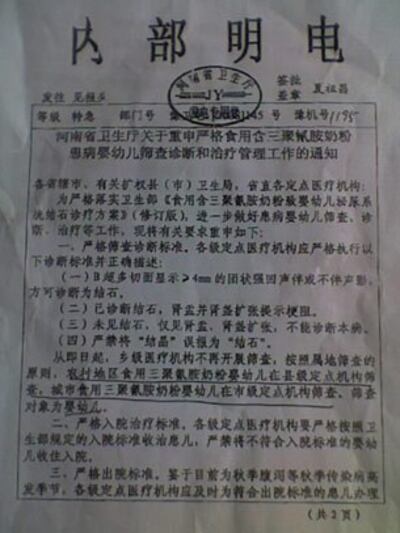 内部明电
河南省卫生厅
JY
发往 见报头
签批
盖章 夏祖昌
等级 特急 部门号 1145 号 豫机号 1195
河南省卫生厅关于重申严格食用含三聚氰胺奶粉
患病婴幼儿筛查诊断和治疗管理工作的通知
各省辖市、有关扩权县(市)卫生局,省直各定点医疗机构:
为严格落实卫生部《食用含三聚氰胺奶粉致婴幼儿泌尿系
统结石诊疗方案》(修订版),进一步做好患病婴幼儿筛查、诊
断、治疗等工作,现将有关要求重申如下:
一、严格筛查诊断标准。各级定点医疗机构应严格执行以
下诊断标准并正确描述:
(一)B超多切面显示≥4mm的团状强回声伴或不伴声影,
方可诊断为结石。
(二)已诊断结石,肾盂并肾盏扩张提示梗阻。
(三)未见结石,仅见肾盂、肾盏扩张,不能诊断本病。
(四)严禁将“结晶”误报为“结石”。
从即日起,乡级医疗机构不再开展筛查,按照属地筛查的
原则,农村地区食用三聚氰胺奶粉婴幼儿在县级定点机构筛
查,城市食用三聚氰胺奶粉婴幼儿在市级定点机构筛查,筛查
对象为婴幼儿。
二、严格入院治疗标准。各级定点医疗机构要严格按照卫
生部规定的入院标准收治患儿,严禁将不符合入院标准的婴幼
儿收住入院。
三、严格出院标准。鉴于目前为秋季腹泻等秋季传染病高
发季节,各级定点医疗机构应及时为符合出院标准的患儿办理
(共2页)